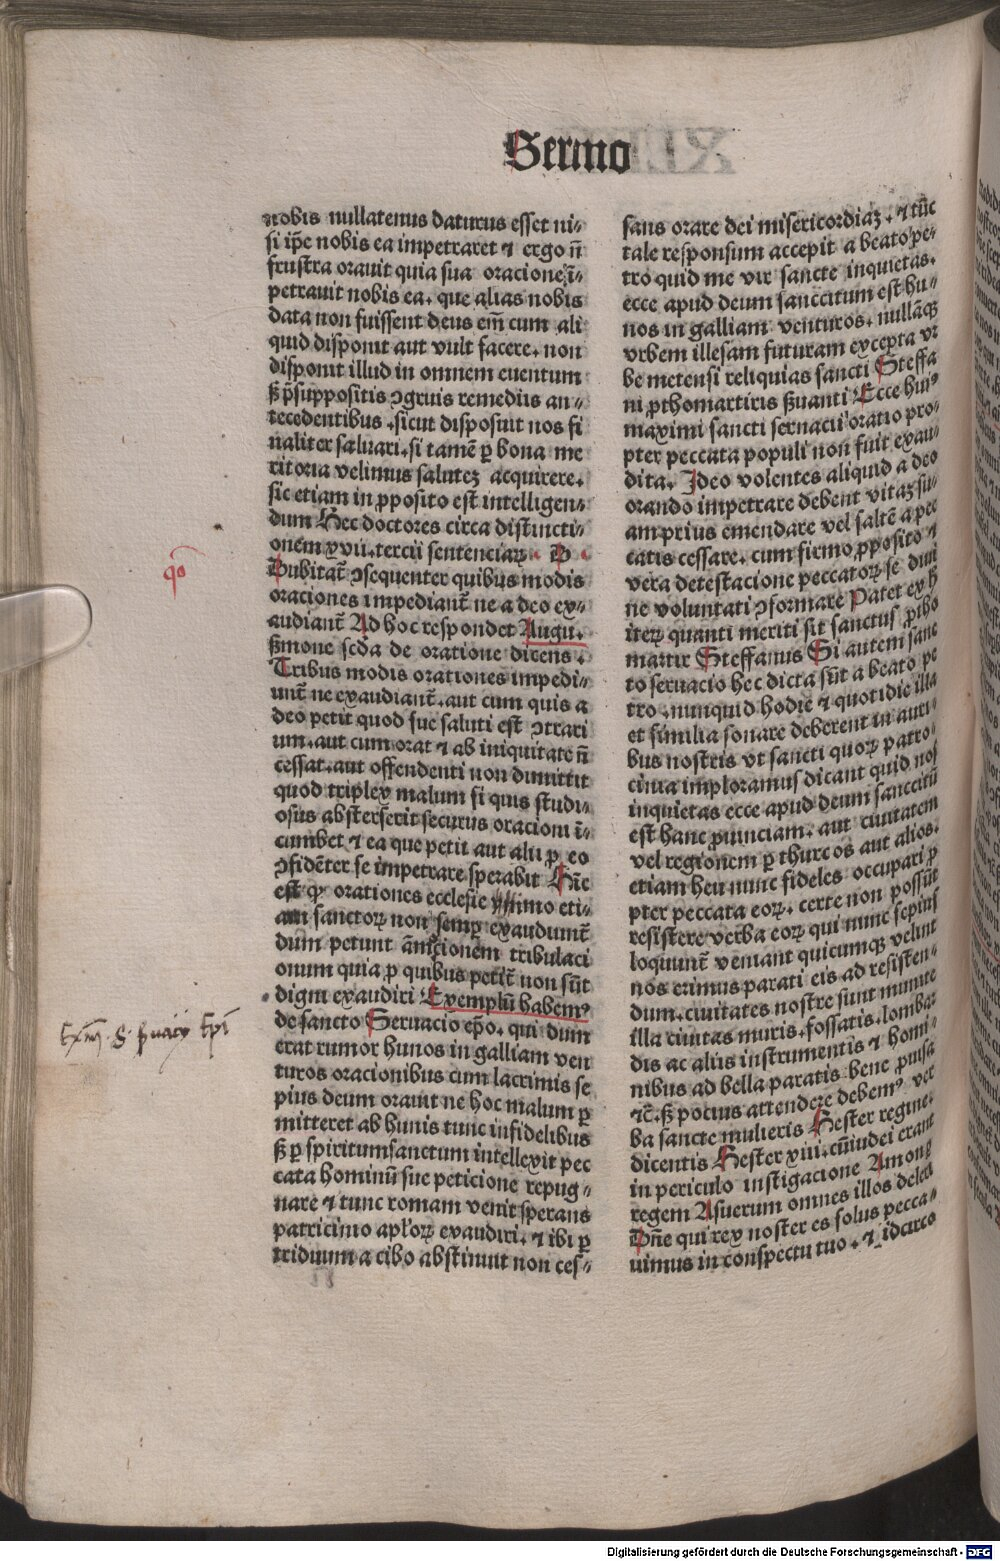 Sermo
nobis nullatenus daturus esset ni⸗
si ip̄e nobis ea impetraret ⁊ ergo n̄
frustra orauit quia sua oracione ī⸗
petrauit nobis ea. que alias nobis
data non fuissent deus em̄ cum ali
quid disponit aut vult facere. non
disponit illud in omnem euentum
ß p̄suppositis ↄgruis remediis an⸗
tecedentibus .sicut disposuit nos fi
naliter saluari. si tamē ꝑ bona me
ritoria velimus salutez acquirere.
sic etiam in ꝓposito est intelligen⸗
dum Hec doctores circa distincti⸗
onem xvii. tercii sentenciaꝝ D
Dubitat̄ ↄsequenter quibus modis
oraciones impediant̄ ne a deo ex⸗
audiant̄ Ad hoc respondet Augu.
ßmone scda de oratione dicens.
Tribus modis orationes impedi⸗
unt̄ ne exaudiant̄. aut cum quis a
deo petit quod sue saluti est ↄtrari
um. aut cum orat ⁊ ab iniquitate n̄
cessat. aut offendenti non dimittit
quod triplex malum si quis studi⸗
osus absterserit securus oracioni ī⸗
cumbet ⁊ ea que petit aut alii ꝓ eo
ↄfidēter se impetrare sperabit Hīc
est ꝙ orationes ecclesie ymmo eti⸗
am sanctoꝝ non semꝑ exaudiunt̄
dum petunt āmocionem tribulaci
onum quia ꝓ quibus petit̄ non sūt
digni exaudiri Exemplū habemꝰ
de sancto Seruacio ep̄o. qui dum
erat rumor hunos in galliam ven
turos oracionibus cum lacrimis se
pius deum orauit ne hoc malum ꝑ
mitteret ab hunis tunc infidelibus
ß ꝑ spiritumsanctum intellexit pec
cata hominū sue peticione repug⸗
nare ⁊ tunc romam venit sperans
patricinio apl'oꝝ exaudiri. ⁊ ibi ꝑ
triduum a cibo abstinuit non ces⸗
sans orare dei misericordiaꝫ. ⁊ tūc
tale responsum accepit a beato pe⸗
tro quid me vir sancte inquietas.
ecce apud deum sanccitum est hu⸗
nos in galliam venturos. nullāqꝫ
vrbem illesam futuram excepta vr
be metensi reliquias sancti Steffa
ni ꝓthomartiris ßuanti Ecce huiꝰ
maximi sancti seruacii oratio pro⸗
pter peccata populi non fuit exau⸗
dita. Ideo volentes aliquid a deo
orando impetrare debent vitaꝫ su⸗
am prius emendare vel saltē a pec
catis cessare. cum firmo ꝓposito ⁊
vera detestacione peccatoꝝ se diui
ne voluntati ↄformare Patet ex h
iteꝝ quanti meriti sit sanctus ꝓtho
martir Steffanus Si autem sanc
to seruacio hec dicta sūt a beato pe
tro .nunquid hodie ⁊ quotidie illa
et similia sonare deberent in auri⸗
bus nostris vt sancti quoꝝ patro⸗
cinia imploramus dicant quid nos
inquietas ecce apud deum sanccitū
est hanc ꝓuinciam. aut ciuitatem
vel regionem ꝑ thurcos aut alios.
etiam heu nunc fideles occupari ꝓ
pter peccata eoꝝ. certe non possūt
resistere verba eoꝝ qui nunc sepius
loquunt̄ veniant quicumqꝫ velint
nos erimus parati eis ad resisten⸗
dum. ciuitates nostre sunt munite
illa ciuitas muris. fossatis. lombar
dis ac aliis instrumentis ⁊ homi⸗
nibus ad bella paratis bene ꝓuisa
⁊c̄. ß pocius attendere debemꝰ ver
ba sancte mulieris Hester regine.
dicentis Hester xiii. cū iudei erant
in periculo instigacione Amonꝭ
regem Asuerum omnes illos deleri
Dn̄e qui rex noster es solus pecca⸗
uimus in conspectu tuo. ⁊ idcirco
qō
Digitalisierung gefördert durch die Deutsche Forschungsgemeinschaft - DFG